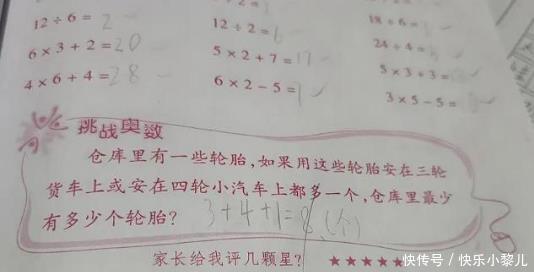 12÷6=2
12÷2=6
18÷6=
6×3+2=20
5×2+7=17
24÷4=
4×6+4=28
6×2-5=
5×3+3=
3×5-5=
挑战奥数
仓库里有一些轮胎,如果用这些轮胎安在三轮
货车上或安在四轮小汽车上都多一个,仓库里最少
有多少个轮胎? 3+4+1=8(个)
家长给我评几颗星? ★★★★★
快传号/快乐小黎儿